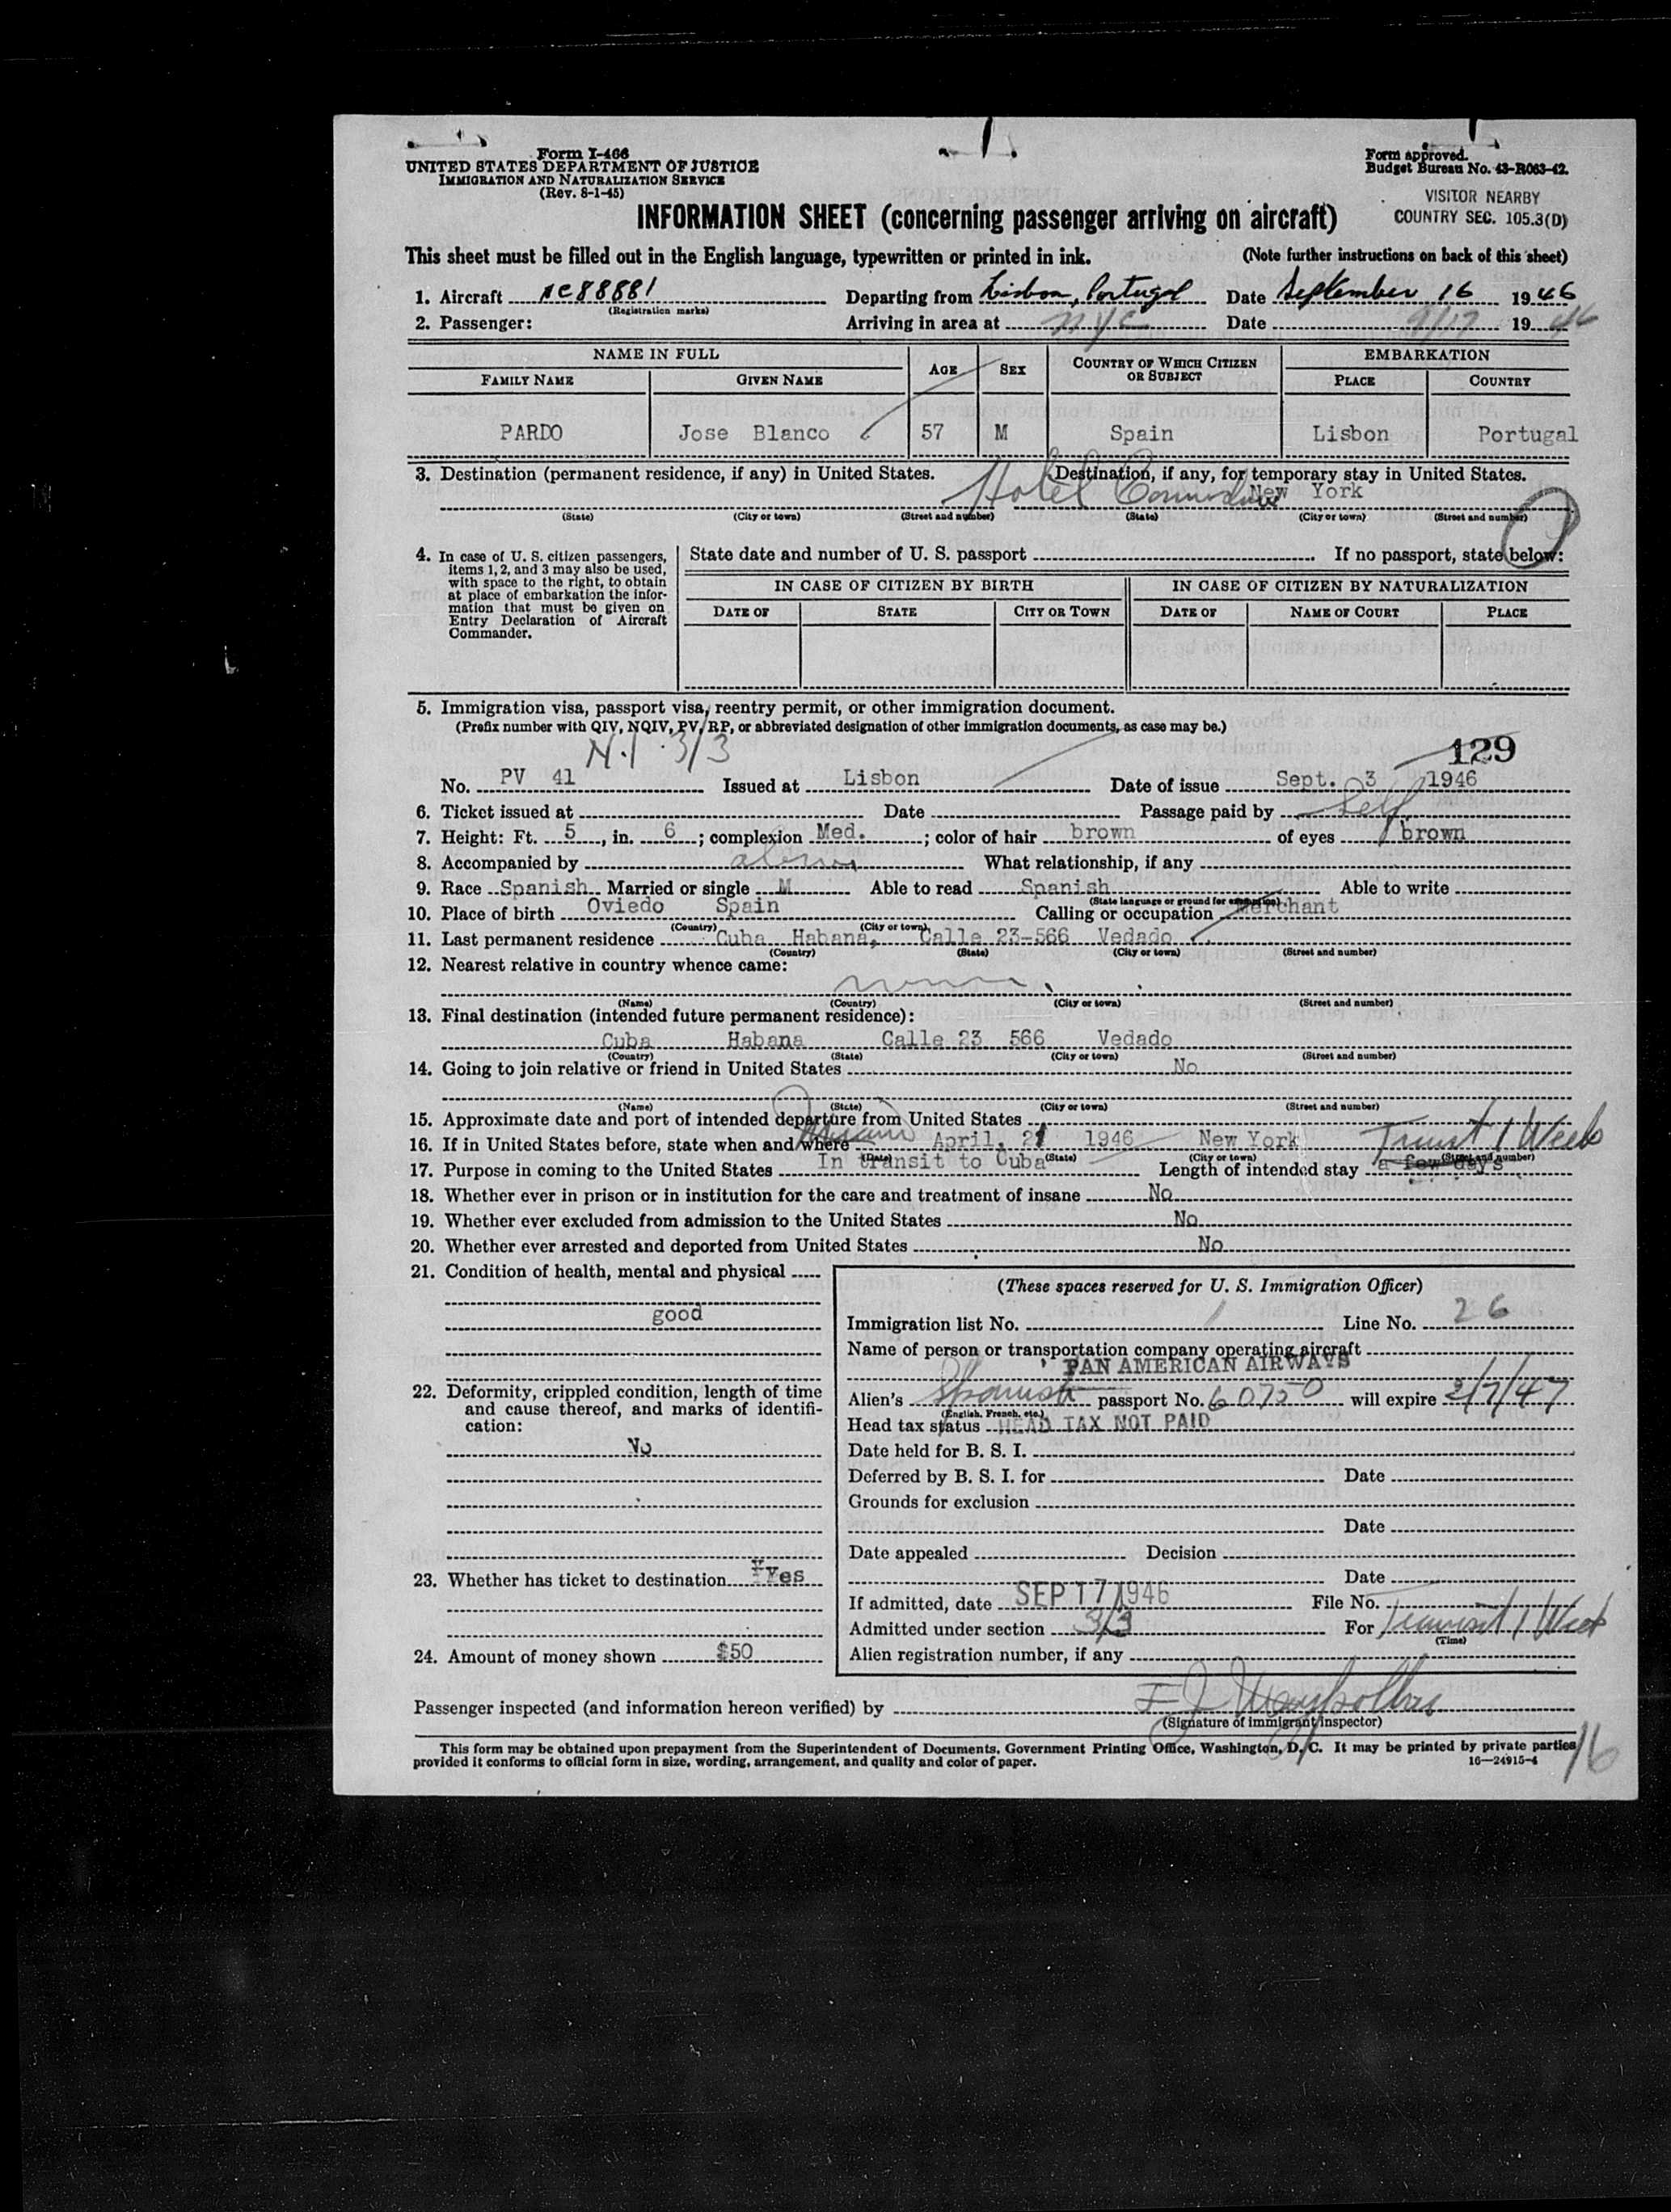 Form I-466
UNITED STATES DEPARTMENT OF JUSTICE
IMMIGRATION AND NATURALIZATION SERVICE
(Rev. 8-1-45)
Form approved.
Budget Bureau No. 43-R063-42.
VISITOR NEARBY
COUNTRY SEC. 105.3(D)
INFORMATION SHEET (concerning passenger arriving on aircraft)
This sheet must be filled out in the English language, typewritten or printed in ink. (Note further instructions on back of this sheet)
1. Aircraft NC88881 Departing from Lisbon, Portugal Date September 16 1946
(Registration marks)
2. Passenger: Arriving in area at NYC Date 9/17 1946
NAME IN FULL AGE SEX COUNTRY OF WHICH CITIZEN OR SUBJECT EMBARKATION
FAMILY NAME GIVEN NAME PLACE COUNTRY
PARDO Jose Blanco 57 M Spain Lisbon Portugal
3. Destination (permanent residence, if any) in United States. Destination, if any, for temporary stay in United States.
Hotel Commodore New York
(State) (City or town) (Street and number) (State) (City or town) (Street and number)
4. In case of U. S. citizen passengers, items 1, 2, and 3 may also be used, with space to the right, to obtain at place of embarkation the information that must be given on Entry Declaration of Aircraft Commander.
State date and number of U. S. passport If no passport, state below:
IN CASE OF CITIZEN BY BIRTH IN CASE OF CITIZEN BY NATURALIZATION
DATE OF STATE CITY OR TOWN DATE OF NAME OF COURT PLACE
5. Immigration visa, passport visa, reentry permit, or other immigration document.
(Prefix number with QIV, NQIV, PV, RP, or abbreviated designation of other immigration documents, as case may be.)
N.I 3/3 129
No. PV 41 Issued at Lisbon Date of issue Sept. 3 1946
6. Ticket issued at Date Passage paid by Self
7. Height: Ft. 5, in. 6; complexion Med.; color of hair brown of eyes brown
8. Accompanied by alone What relationship, if any
9. Race Spanish Married or single M Able to read Spanish Able to write
(State language or ground for exemption)
10. Place of birth Oviedo Spain Calling or occupation Merchant
(Country) (City or town)
11. Last permanent residence Cuba Habana, Calle 23-566 Vedado
(Country) (State) (City or town) (Street and number)
12. Nearest relative in country whence came:
none
(Name) (Country) (City or town) (Street and number)
13. Final destination (intended future permanent residence):
Cuba Habana Calle 23 566 Vedado
(Country) (State) (City or town) (Street and number)
14. Going to join relative or friend in United States No
(Name) (State) (City or town) (Street and number)
15. Approximate date and port of intended departure from United States
16. If in United States before, state when and where Miami April, 21 1946 New York Transit 1 Week
(Date) (State) (City or town) (Street and number)
17. Purpose in coming to the United States In transit to Cuba Length of intended stay a few days
18. Whether ever in prison or in institution for the care and treatment of insane No
19. Whether ever excluded from admission to the United States No
20. Whether ever arrested and deported from United States No
21. Condition of health, mental and physical
good
22. Deformity, crippled condition, length of time and cause thereof, and marks of identification:
No
23. Whether has ticket to destination Yes
24. Amount of money shown $50
(These spaces reserved for U. S. Immigration Officer)
Immigration list No. 1 Line No. 26
Name of person or transportation company operating aircraft
PAN AMERICAN AIRWAYS
Alien's Spanish passport No. 60750 will expire 2/7/47
(English, French, etc.)
Head tax status HEAD TAX NOT PAID
Date held for B. S. I.
Deferred by B. S. I. for Date
Grounds for exclusion
Date
Date appealed Decision
Date
If admitted, date SEP 17 1946 File No.
Admitted under section 3/3 For Transit 1 Week
(Time)
Alien registration number, if any
Passenger inspected (and information hereon verified) by
(Signature of immigrant inspector)
This form may be obtained upon prepayment from the Superintendent of Documents, Government Printing Office, Washington, D. C. It may be printed by private parties
provided it conforms to official form in size, wording, arrangement, and quality and color of paper. 16—24915-4
16